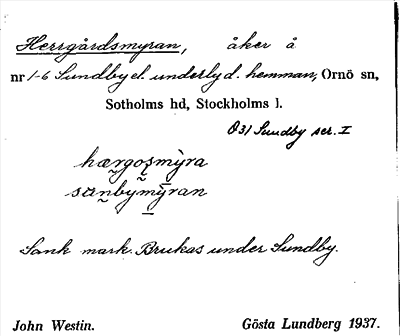 Herrgårdsmyran, åker å
nr 1-6 Sundby el. underlyd. hemman, Ornö sn,
Sotholms hd, Stockholms l.
Ö31 Sundby ser. I
hærgoṣmỳra
sɑnbymỳran
Sank mark. Brukas under Sundby.
John Westin. Gösta Lundberg 1937.